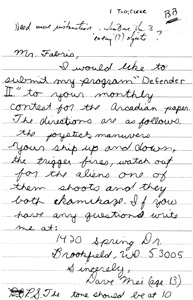 I TWO, CLOSE
BB
Need more instructions - who are the 3
enemy (?) objects?
Mr. Fabris,
I would like to
submit my program "Defender
II." to your monthly
contest for the Arcadian paper.
The directions are as follows
the joystick maneuvers
your ship up and down,
the trigger fires, watch out
for the aliens one of
them shoots and they
both chamikaze. If you
have any questions write
me at:
1420 Spring Dr.
Brookfield, WI. 53005
Sincerely,
Dave Mei (age 13)
P.S. The tone should be at 10